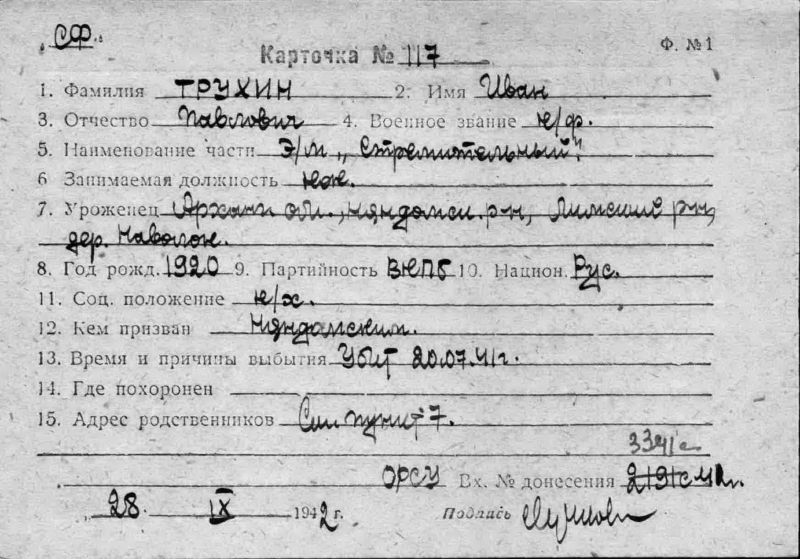 "СФ."
Карточка № 117 Ф. №1
1. Фамилия ТРУХИН 2. Имя Иван
3. Отчество Павлович 4. Военное звание к/ф.
5. Наименование части Э/м „Стремительный".
6 Занимаемая должность кок.
7. Уроженец Арханг обл., Няндомск. р-н, Лимский р-н,
дер. Наволок.
8. Год рожд. 1920 9. Партийность ВКПб 10. Национ. Рус.
11. Соц. положение к/х.
12. Кем призван Няндомским.
13. Время и причины выбытия Убит 20.07.41г.
14. Где похоронен
15. Адрес родственников См. пункт 7.
3341с
ОРСУ Вх. № донесения
„28 IX 1942 г. Подпись